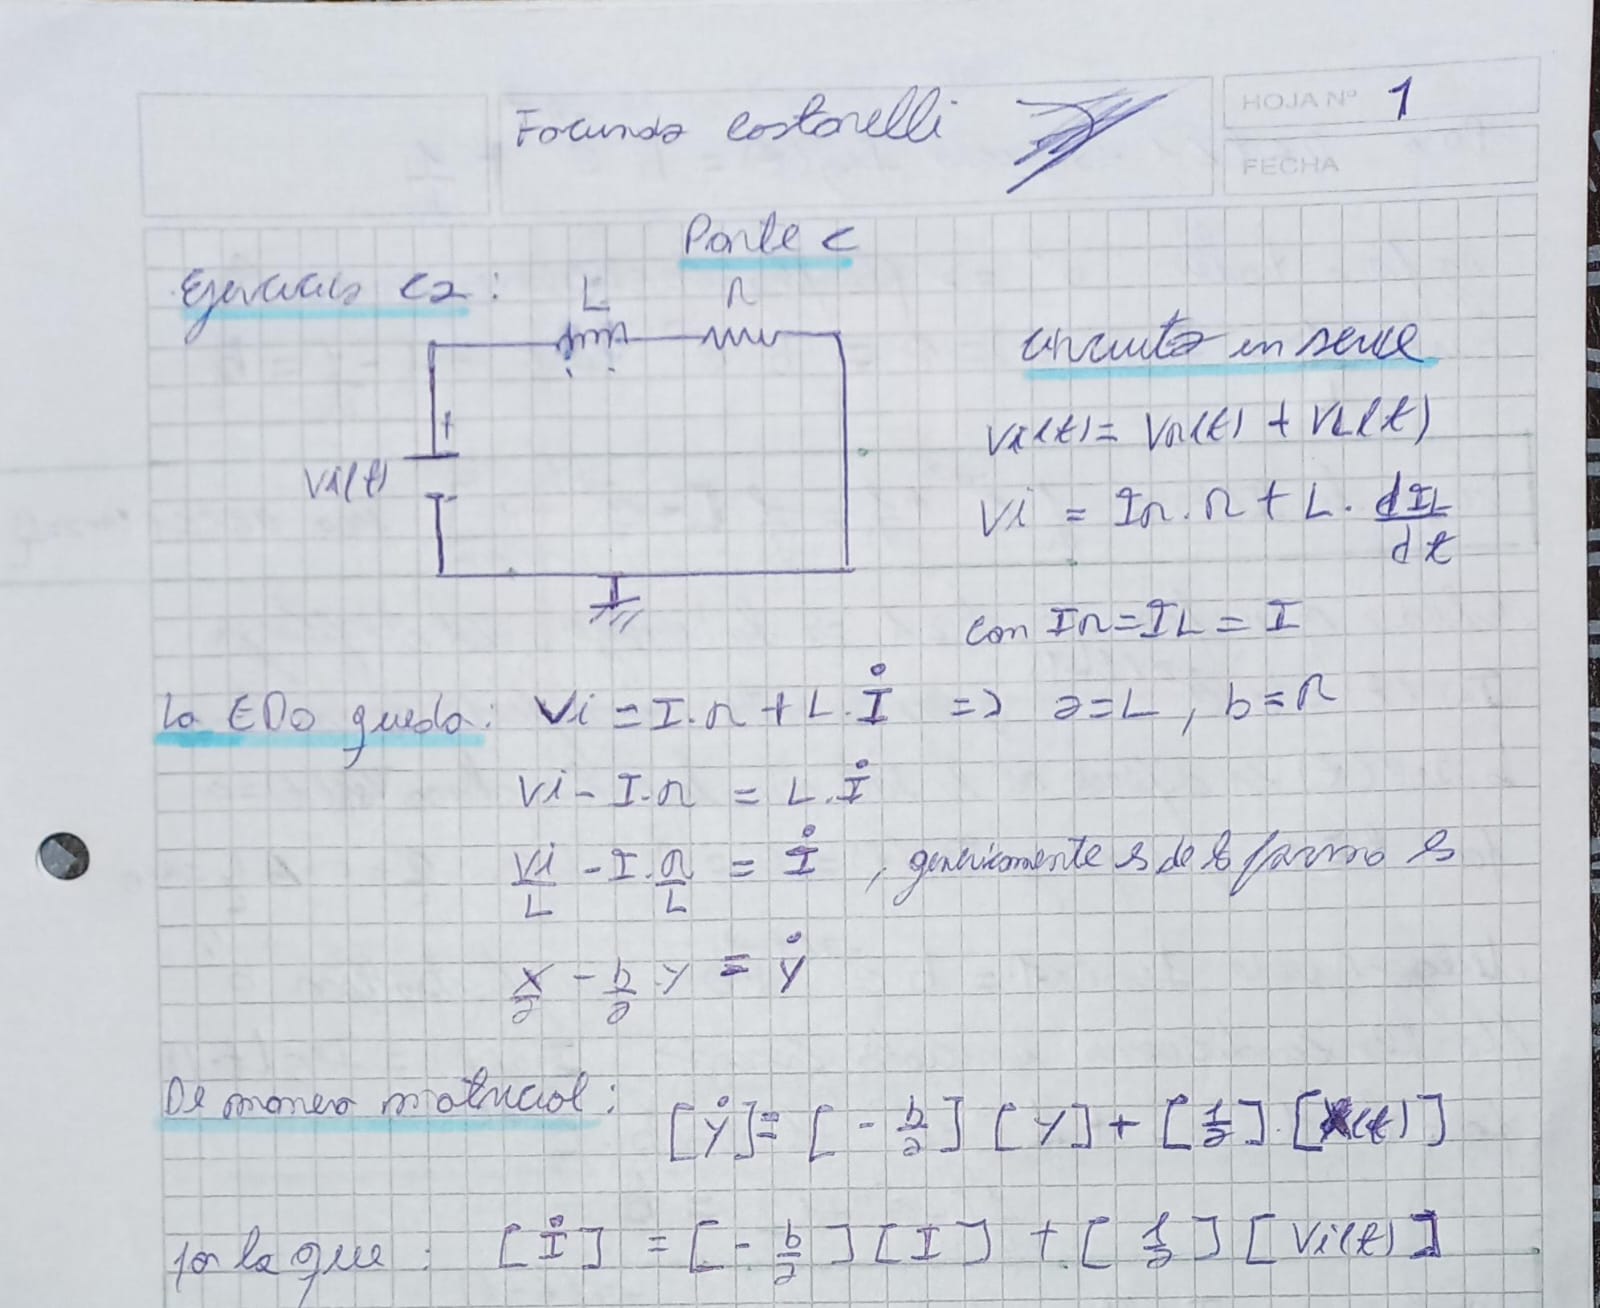 Facundo Costarelli
HOJA Nº 1
FECHA
Parte C
Ejercicio C2:
L R
circuito en serie
Vi(t) = VR(t) + VL(t)
+
Vi(t)
Vi = IR.R + L. dIL/dt
con IR = IL = I
la EDO queda: Vi = I.R + L.İ => a=L, b=R
Vi - I.R = L.İ
Vi/L - I.R/L = İ, genéricamente es de la forma es
x/a - b/a y = ẏ
De manera matricial: [ẏ] = [-b/a] [y] + [1/a].[x(t)]
por lo que: [İ] = [-b/a] [I] + [1/a] [Vi(t)]